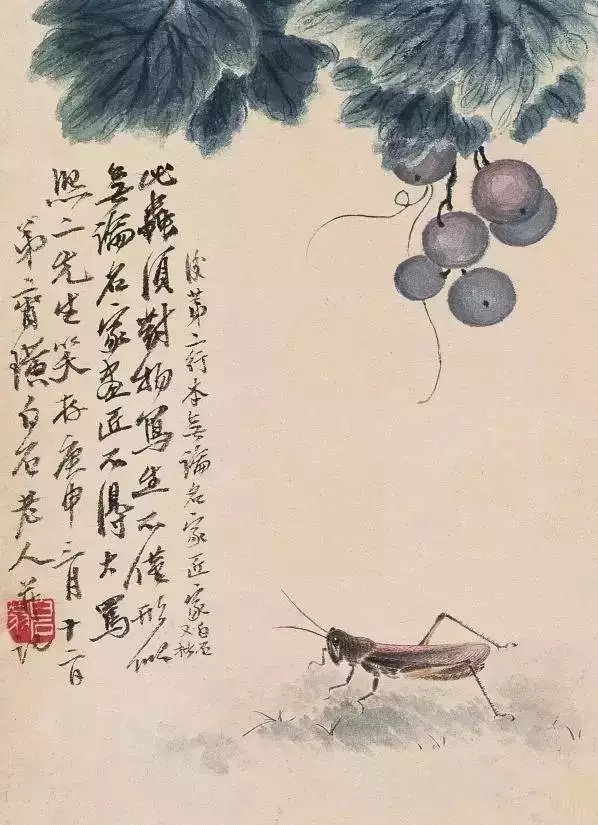 此蟲須對物寫生不僅形似
無論名家畫匠不得大罵
照二先生笑存庚申三月十二日
弟齊璜白石老人並記
後第二行本無論名家匠家白石又